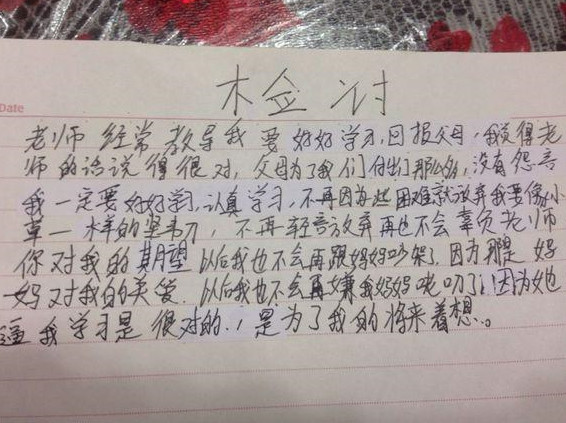 Date
检讨
老师经常教导我要好好学习,回报父母,我觉得老
师的话说得很对,父母为了我们付出们那么多,没有怨言
我一定要好好学习,认真学习,不再因为些困难就放弃我要像小
草一样的坚韧,不再轻言放弃再也不会辜负老师
你对我的期望 以后我也不会再跟妈妈吵架了,因为那是妈
妈对我的关爱。以后我也不会再嫌我妈妈唠叨了,因为她
逼我学习是很对的.,是为了我的将来着想。